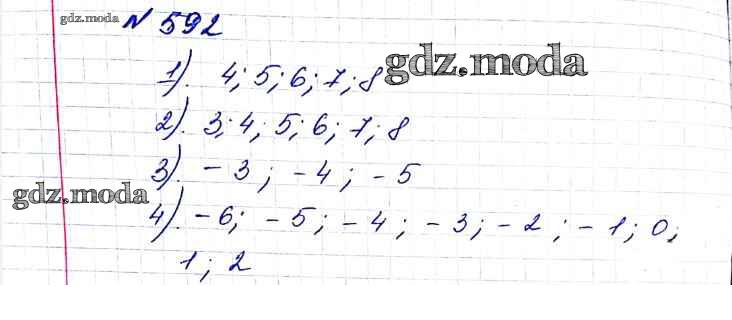 gdz.moda № 592
1). 4; 5; 6; 7; 8 gdz.moda
2). 3; 4; 5; 6; 7; 8
3). -3; -4; -5
gdz.moda
4). -6; -5; -4; -3; -2; -1; 0;
1; 2